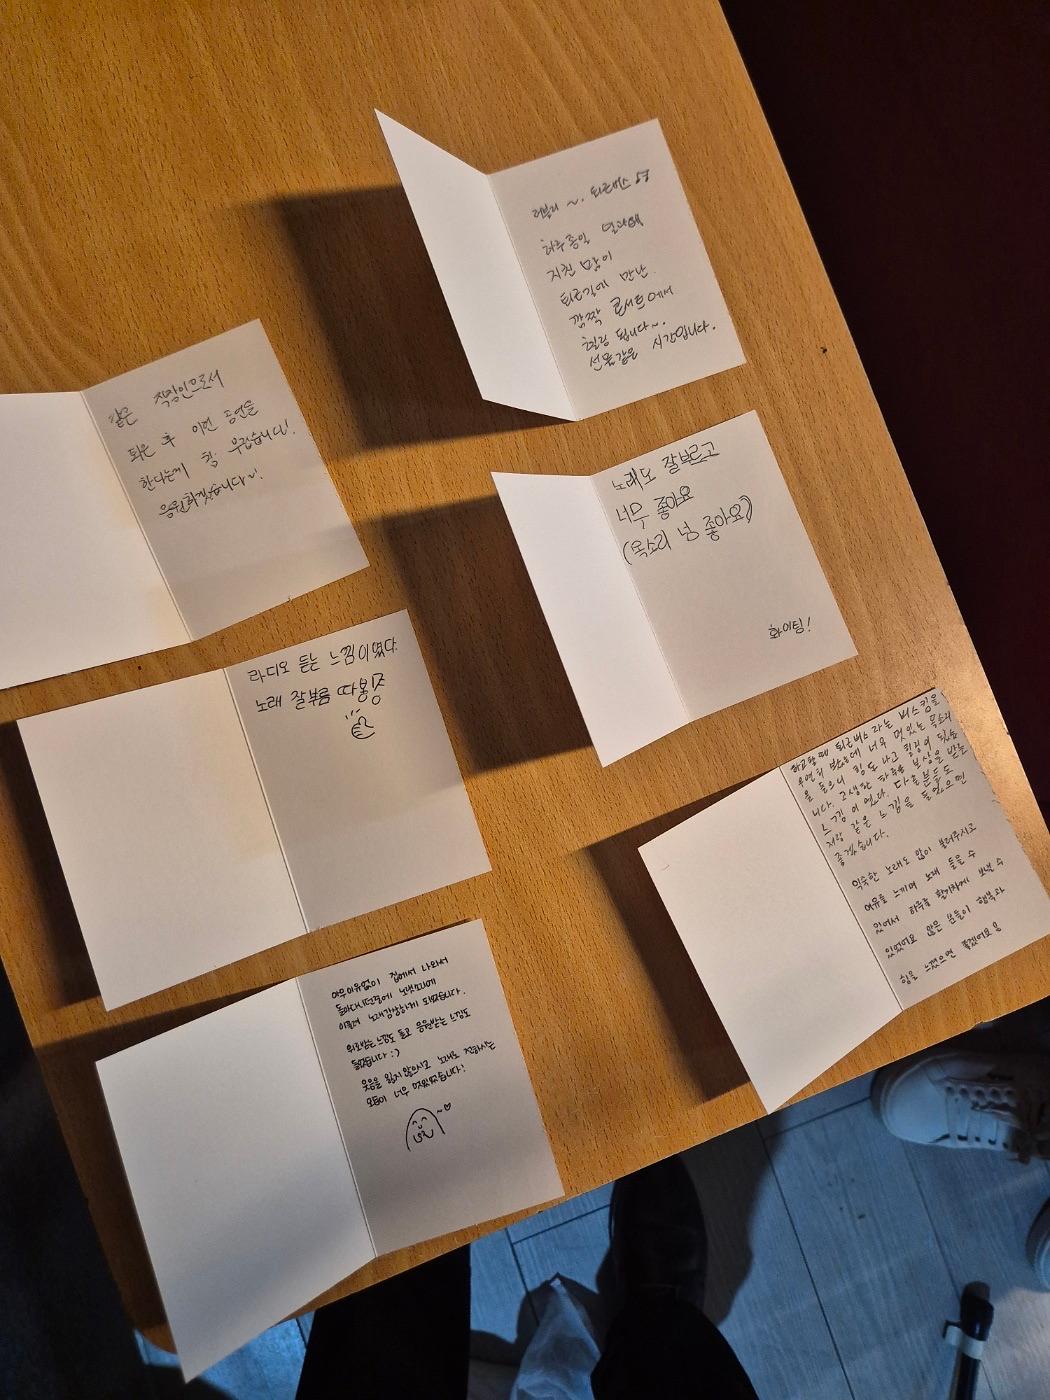 러블리 ~. 퇴근버스 ♫
하루종일 업무에
지친 맘이
퇴근길에 만난
깜짝 콘서트에서
힐링 됩니다~.
선물같은 시간입니다.
같은 직장인으로서
퇴근 후 이런 공연을
한다는게 참 부럽습니다!
응원하겠습니다~!
노래도 잘부르고
너무 좋아요
(목소리 넘 좋아요)
화이팅!
라디오 듣는 느낌이였다
노래 잘부름 따봉
하교할 때 퇴근버스라는 버스킹을
우연히 봤는데 너무 멋있는 목소리
을 들으니 힘도 나고 힐링이 됬습
니다. 고생한 하루를 보상을 받는
느낌이었다. 다른분들도
저랑 같은 느낌을 들었으면
좋겠습니다.
익숙한 노래도 많이 불러주시고
여유를 느끼며 노래 들을 수
있어서 하루를 활기차게 보낼 수
있었어요 많은 분들이 행복과
힘을 느꼈으면 좋겠어요
아무이유없이 집에서 나와서
돌아다니던중에 노랫소리에
이끌려 노래감상하게 되었습니다.
위로받는 느낌도 들고 응원받는 느낌도
들었습니다 :)
웃음을 잃지 않으시고 노래도 잘하시는
모습이 너무 멋있었습니다!